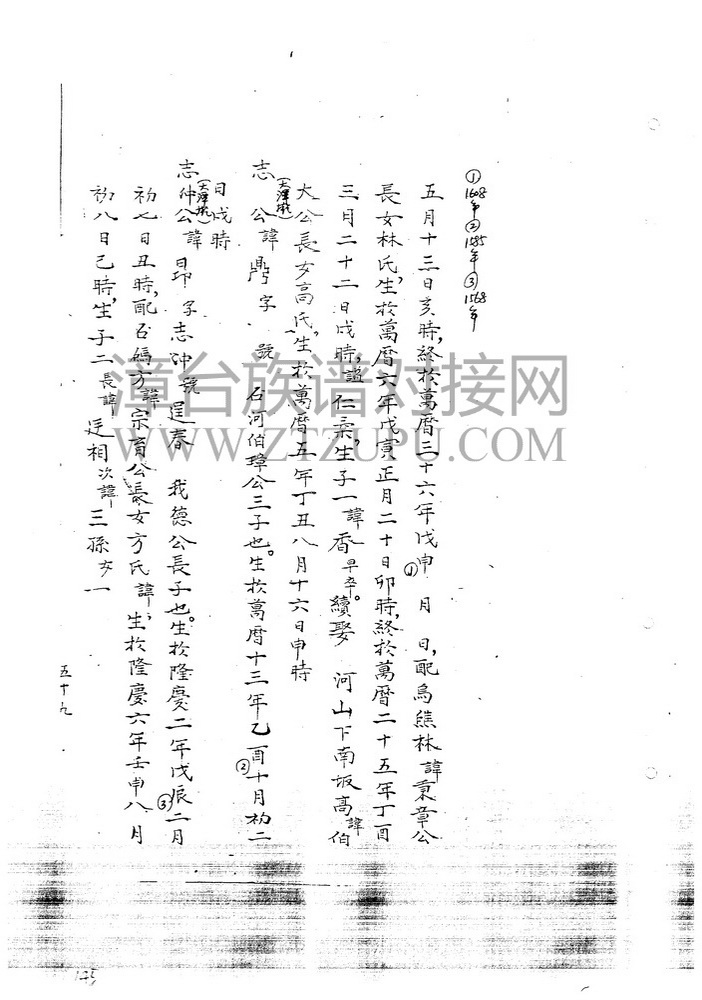 ①1608年②1585年③1568年
五月十三日亥時，終於萬曆三十六年戊申①月 日，配烏熊林諱秉章公
長女林氏，生於萬曆六年戊寅正月二十日卯時，終於萬曆二十五年丁酉
三月二十二日戌時，謚仁柔，生子一諱香早卒。續娶 河山下南坂高諱伯
大公長女高氏，生於萬曆五年丁丑八月十六日申時
志 公諱鼎 字 號 石河伯瑋公三子也。生於萬曆十三年乙酉②十月初二
日戌時
志仲公諱昂 字志沖 號 春 我德公長子也。生於隆慶二年戊辰③二月
初七日丑時，配石碼方諱宗育公長女方氏諱，生於隆慶六年壬申八月
初八日己時，生子二長諱 相次諱三孫女一
五十九
漳台族谱对接网
WWW.ZTZUPU.COM